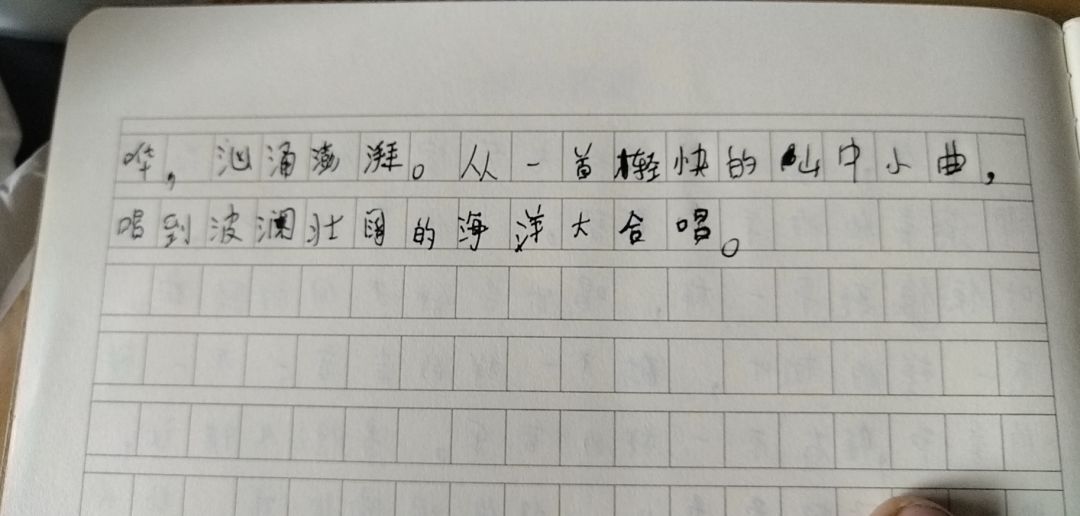 哗，汹涌澎湃。从一首轻快的山中小曲，
唱到波澜壮阔的海洋大合唱。